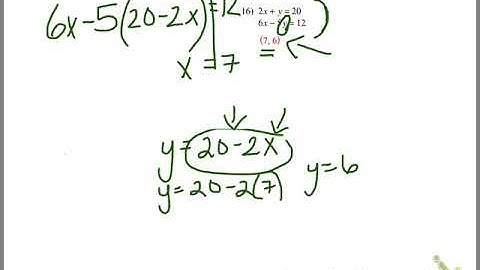 16) 2x + y = 20
6x - 5y = 12
(7, 6)
6x-5(20-2x)=12
x = 7
y=20-2x
y=20-2(7)
y=6